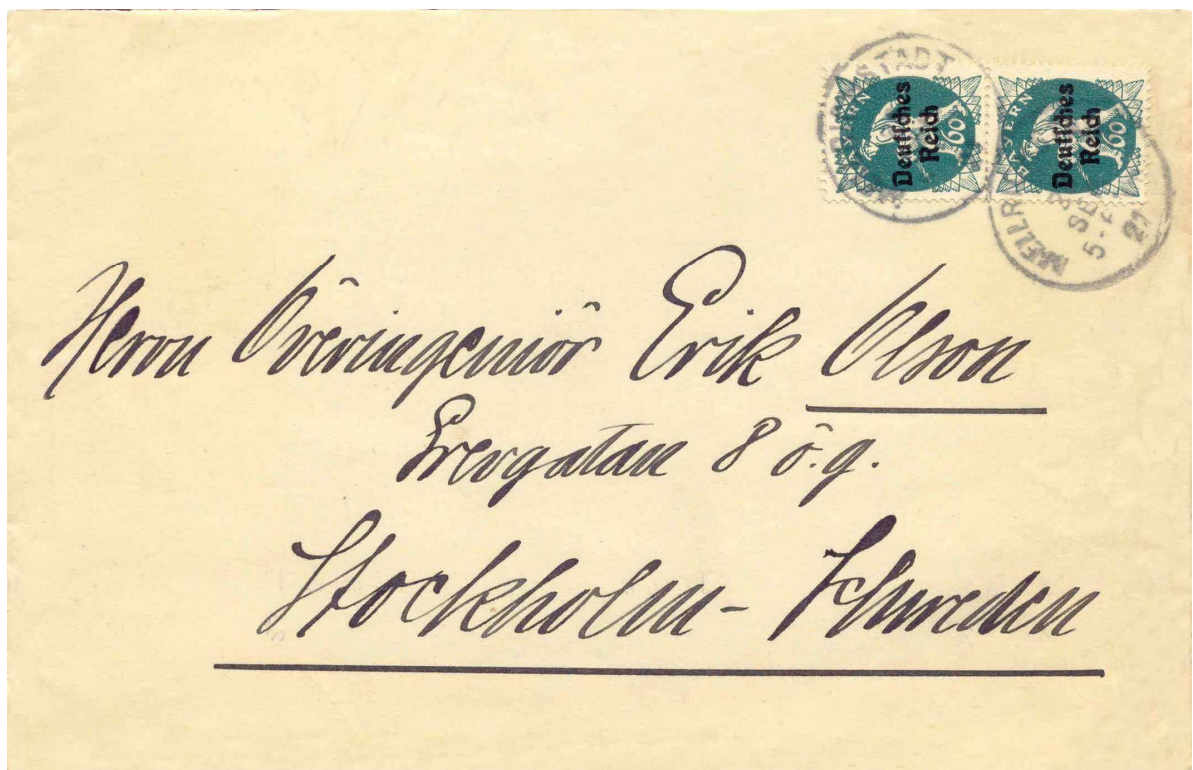 STADT
BAYERN
60
Deutsches
Reich
BAYERN
60
Deutsches
Reich
MELLR
SE
21
Herrn Överingeniör Erik Olson
Grevgatan 8 ö.g.
Stockholm - Schweden